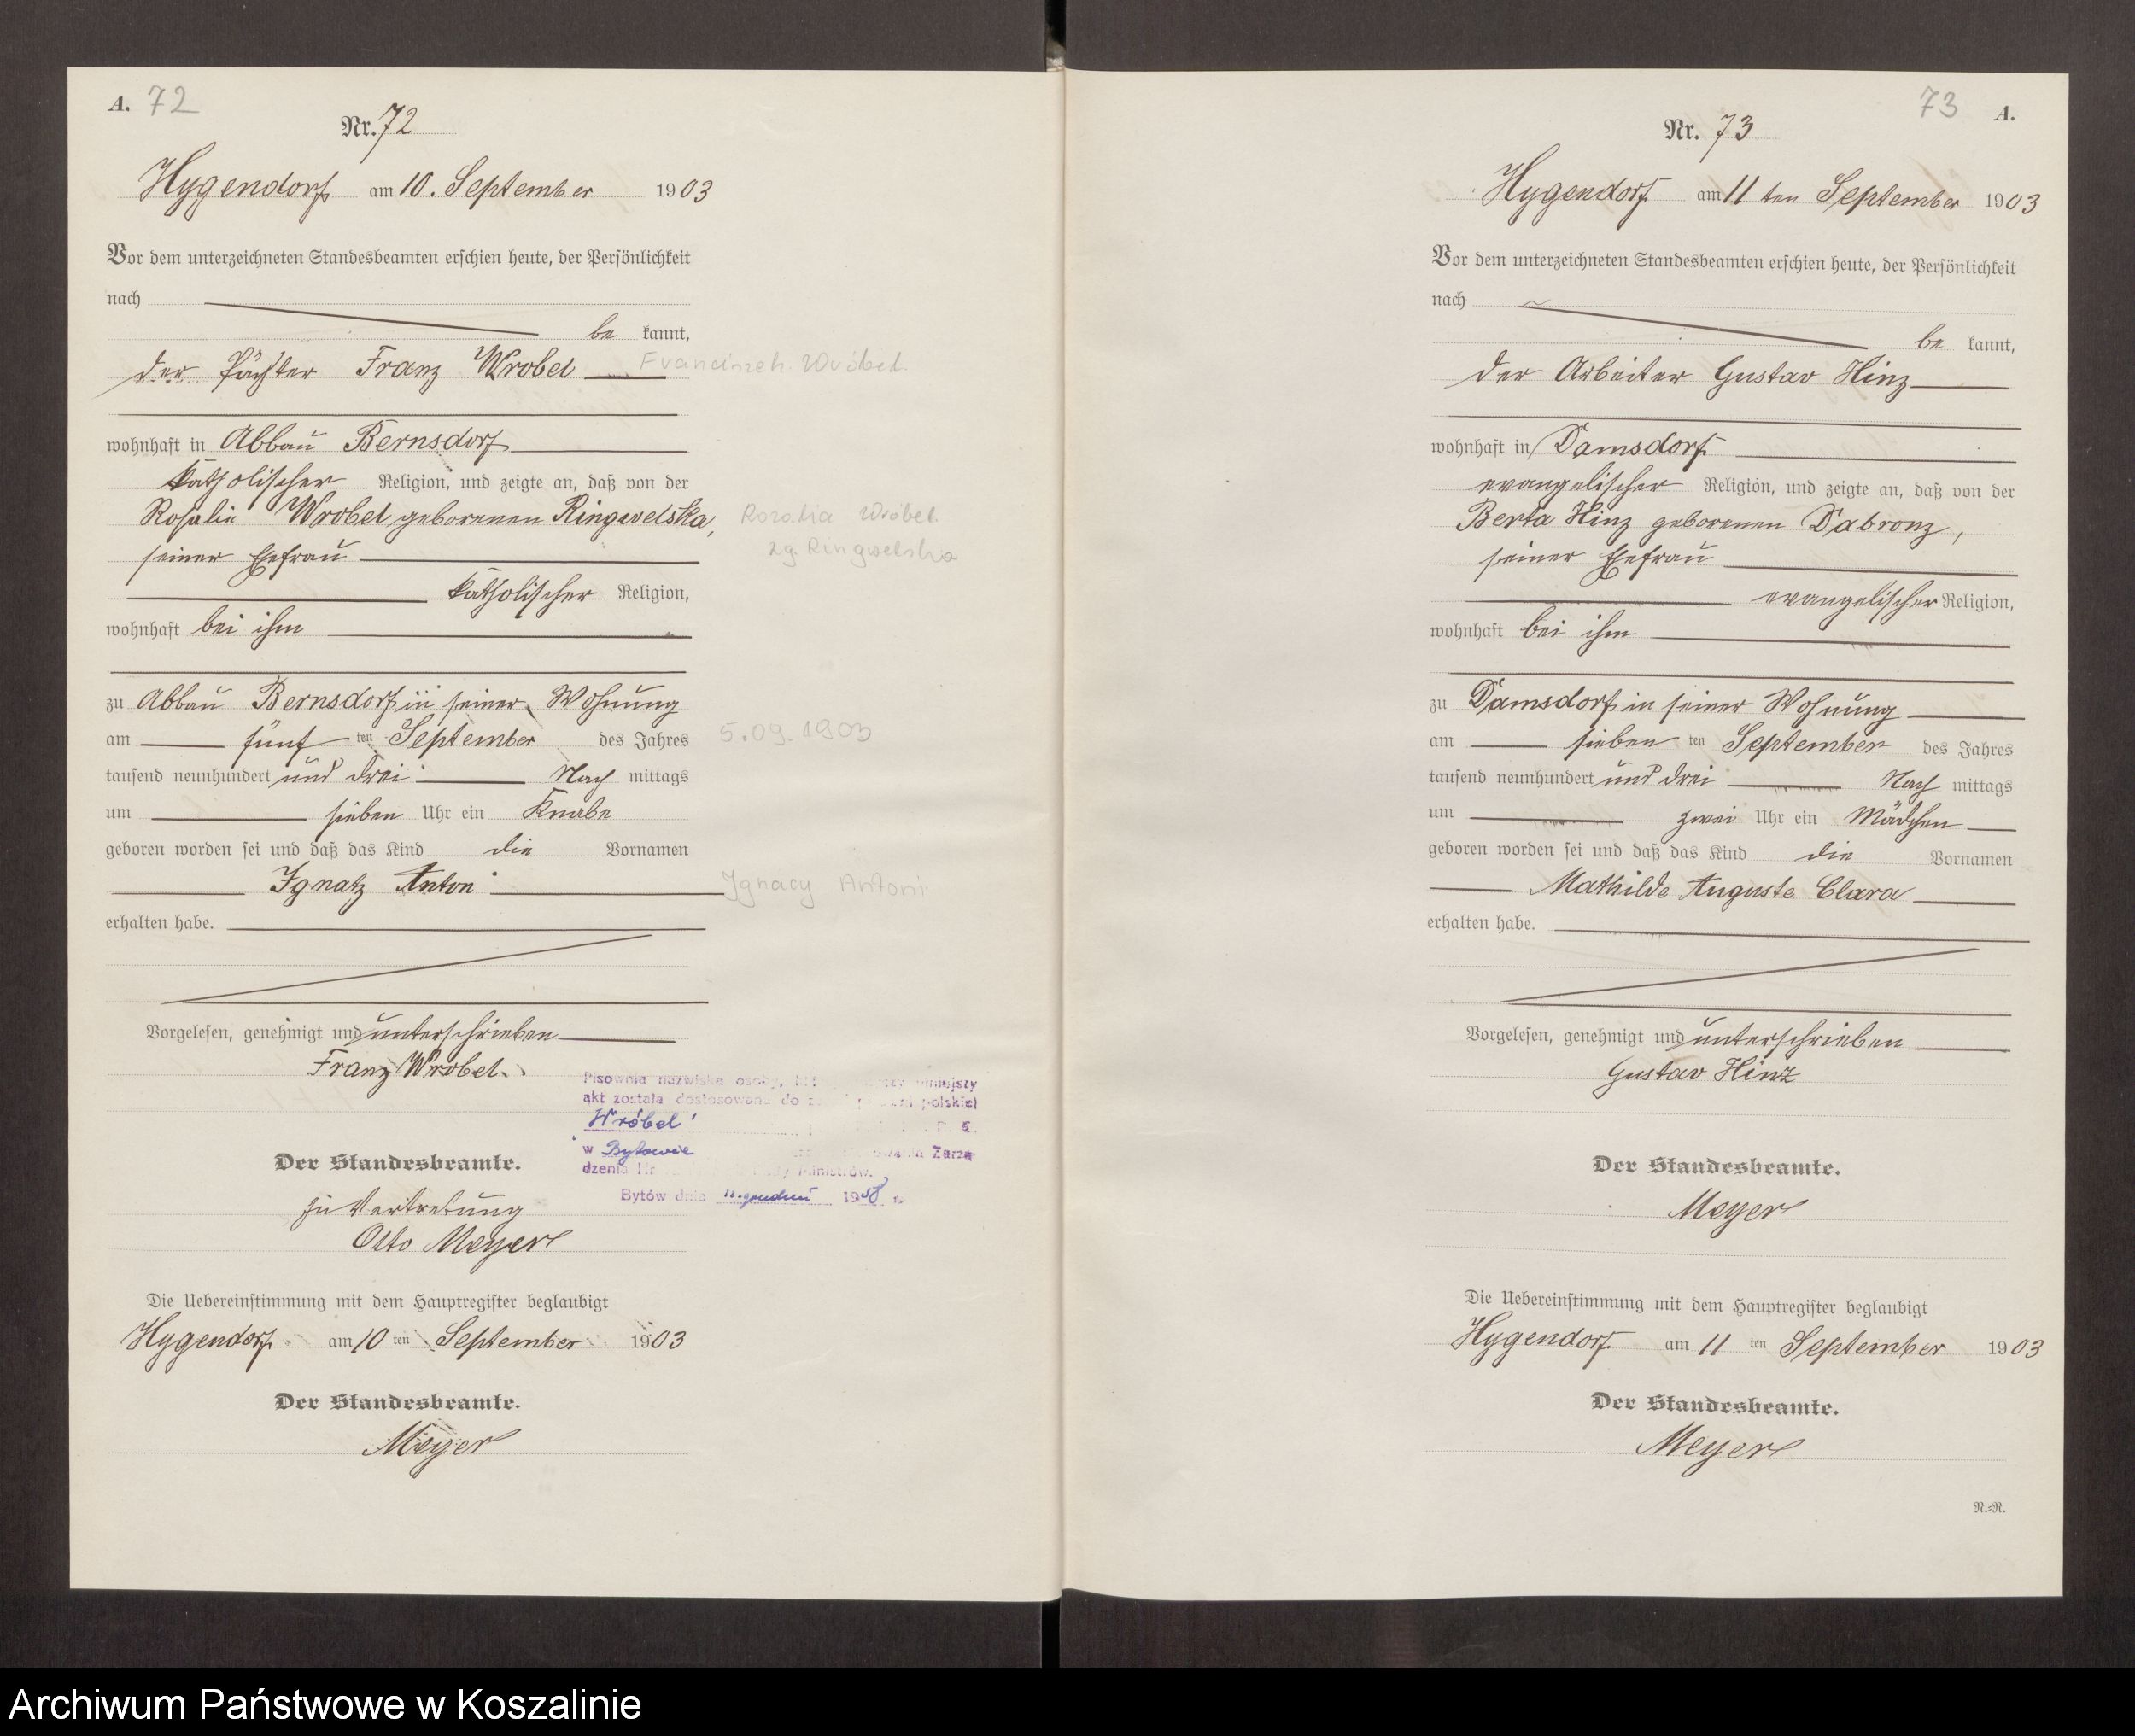 A. 72
Nr. 72
Hygendorf am 10. September 1903
Vor dem unterzeichneten Standesbeamten erschien heute, der Persönlichkeit
nach
be kannt,
der Pächter Franz Wrobel Francinzek Wróbel
wohnhaft in Abbau Bernsdorf
katholischer Religion, und zeigte an, daß von der
Rosalie Wrobel geborenen Ringwelska, Rozalia Wróbel
seiner Ehefrau zg. Ringwelska
katholischer Religion,
wohnhaft bei ihm
zu Abbau Bernsdorf in seiner Wohnung
am fünf ten September des Jahres 5.09.1903
tausend neunhundert und drei Nach mittags
um sieben Uhr ein Knabe
geboren worden sei und daß das Kind die Vornamen
Ignatz Anton Ignacy Antoni
erhalten habe.
Vorgelesen, genehmigt und unterschrieben
Franz Wrobel.
Pisownia nazwiska osoby, niniejszy
akt została dostosowana do polskiej
Wróbel
w Bytowie Zarzą
dzenia Nr Ministrów.
Bytów dnia 11. grudnia 1958 r.
Der Standesbeamte.
In Vertretung
Otto Meyer
Die Uebereinstimmung mit dem Hauptregister beglaubigt
Hygendorf am 10 ten September 1903
Der Standesbeamte.
Meyer
73 A.
Nr. 73
Hygendorf am 11 ten September 1903
Vor dem unterzeichneten Standesbeamten erschien heute, der Persönlichkeit
nach
be kannt,
der Arbeiter Gustav Hinz
wohnhaft in Damsdorf
evangelischer Religion, und zeigte an, daß von der
Berta Hinz geborenen Dabronz,
seiner Ehefrau
evangelischer Religion,
wohnhaft bei ihm
zu Damsdorf in seiner Wohnung
am sieben ten September des Jahres
tausend neunhundert und drei Nach mittags
um zwei Uhr ein Mädchen
geboren worden sei und daß das Kind die Vornamen
Mathilde Auguste Clara
erhalten habe.
Vorgelesen, genehmigt und unterschrieben
Gustav Hinz
Der Standesbeamte.
Meyer
Die Uebereinstimmung mit dem Hauptregister beglaubigt
Hygendorf am 11 ten September 1903
Der Standesbeamte.
Meyer
N.=R.
Archiwum Państwowe w Koszalinie